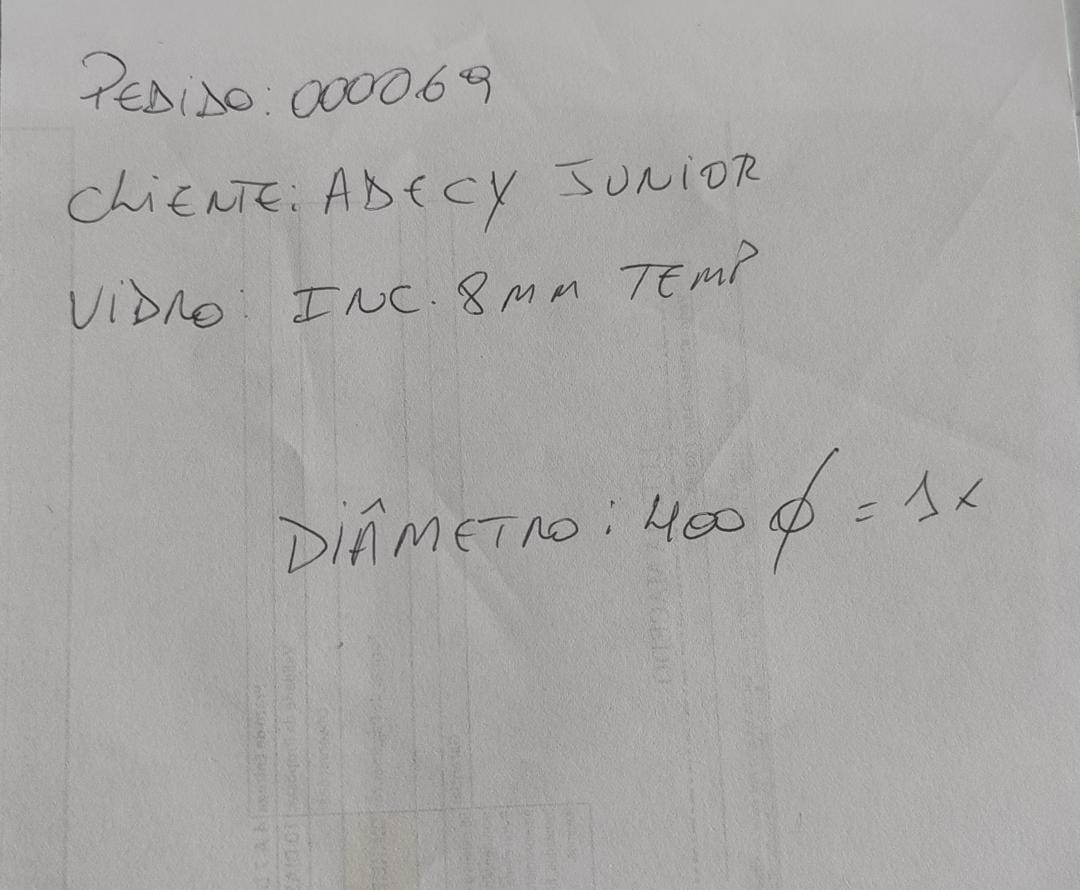 PEDIDO: 000069
CLIENTE: ADECY JUNIOR
VIDRO: INC. 8MM TEMP
DIÂMETRO: 400 ϕ = 1x